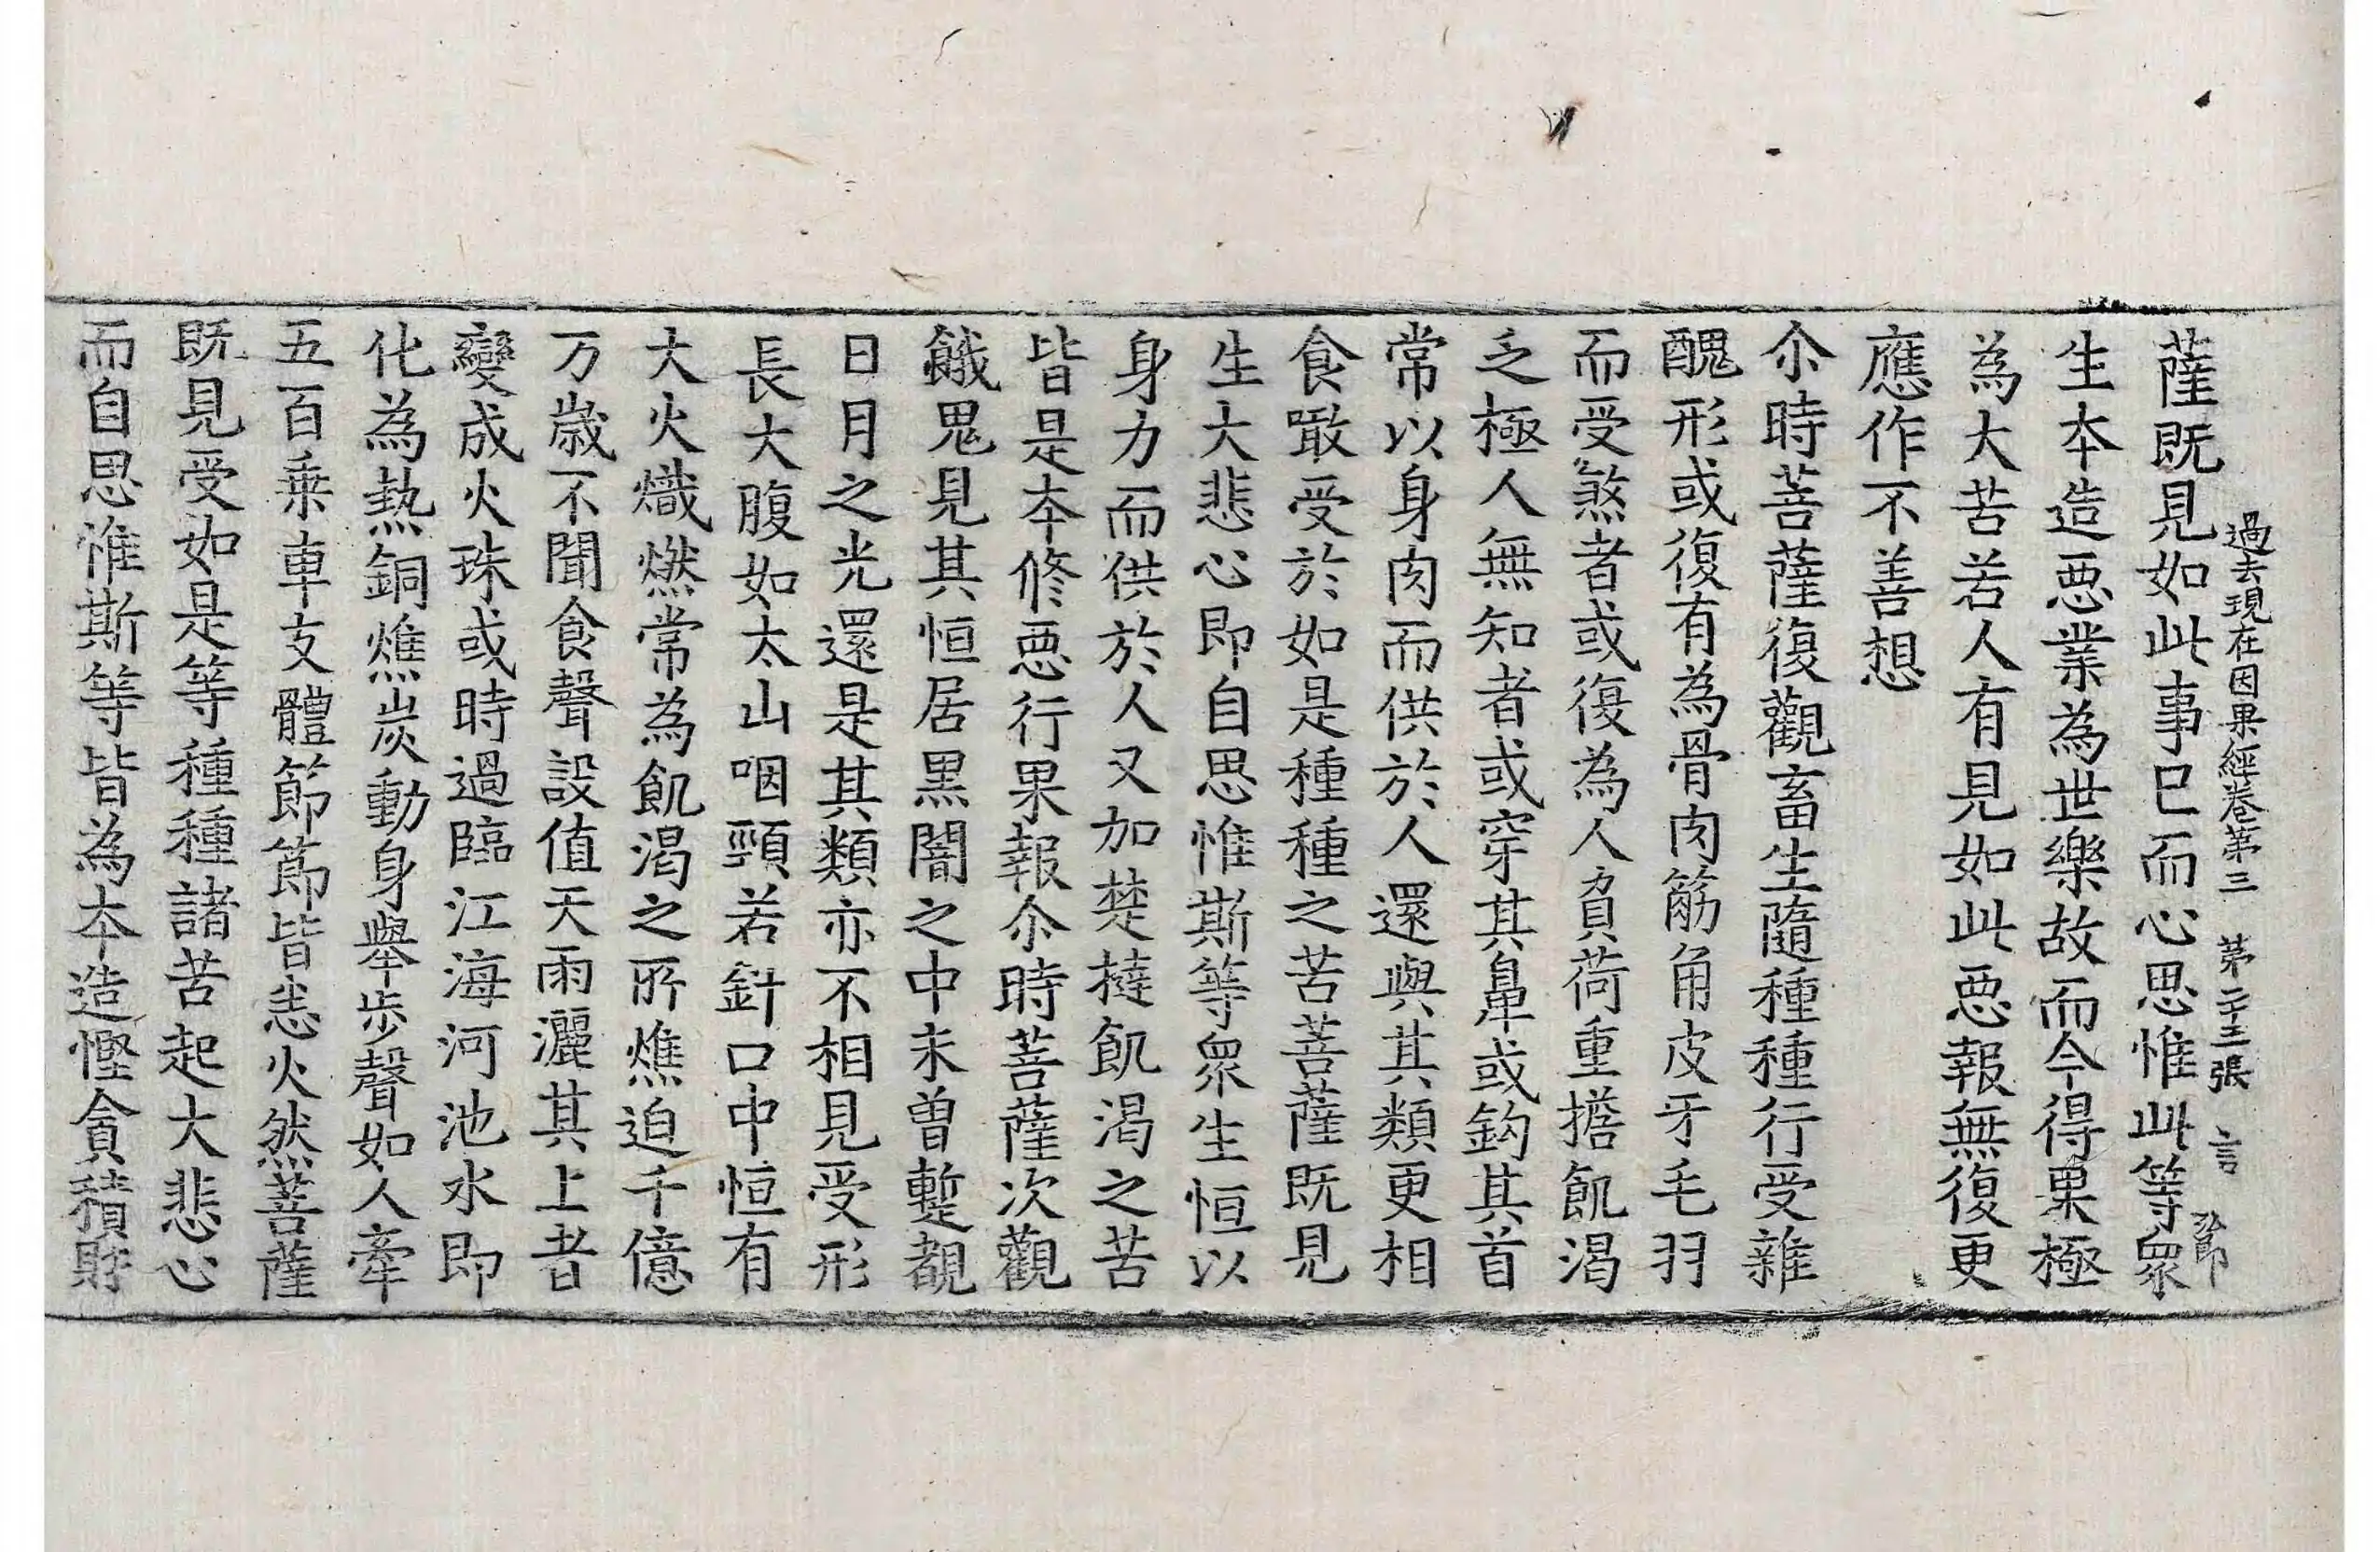 過去現在因果經卷第三 第二十三張 言
薩旣見如此事已而心思惟此等衆
生本造惡業為世樂故而今得果極
為大苦若人有見如此惡報無復更
應作不善想
尒時菩薩復觀畜生隨種種行受雜
醜形或復有為骨肉筋角皮牙毛羽
而受煞者或復為人負荷重擔飢渴
乏極人無知者或穿其鼻或鈎其首
常以身肉而供於人還與其類更相
食噉受於如是種種之苦菩薩旣見
生大悲心即自思惟斯等衆生恒以
身力而供於人又加楚撻飢渴之苦
皆是本修惡行果報尒時菩薩次觀
餓鬼見其恒居黑闇之中未曾蹔覩
日月之光還是其類亦不相見受形
長大腹如太山咽頸若針口中恒有
大火熾燃常為飢渴之所燋迫千億
万歲不聞食聲設值天雨灑其上者
變成火珠或時過臨江海河池水即
化為熱銅燋炭動身舉步聲如人牽
五百乘車支體節節皆悉火然菩薩
旣見受如是等種種諸苦起大悲心
而自思惟斯等皆為本造慳貪積財